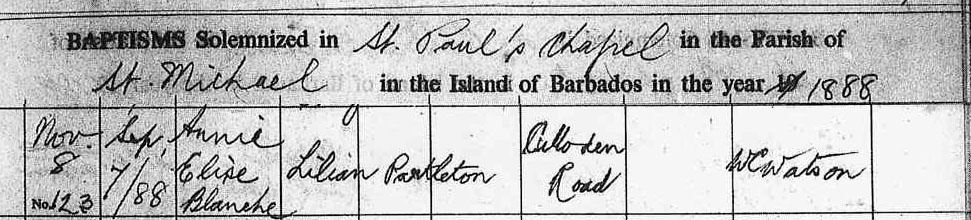 BAPTISMS Solemnized in St. Paul's Chapel in the Parish of
St. Michael in the Island of Barbados in the year 1888
Nov. Sep, Annie Culloden
8 7/88 Elise Lilian Partleton Road WC Watson
No. 123 Blanche